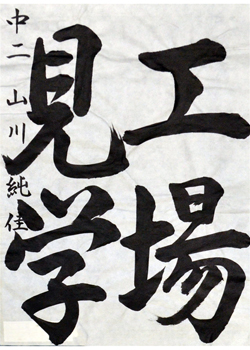 工場
見学
中二 山川純佳